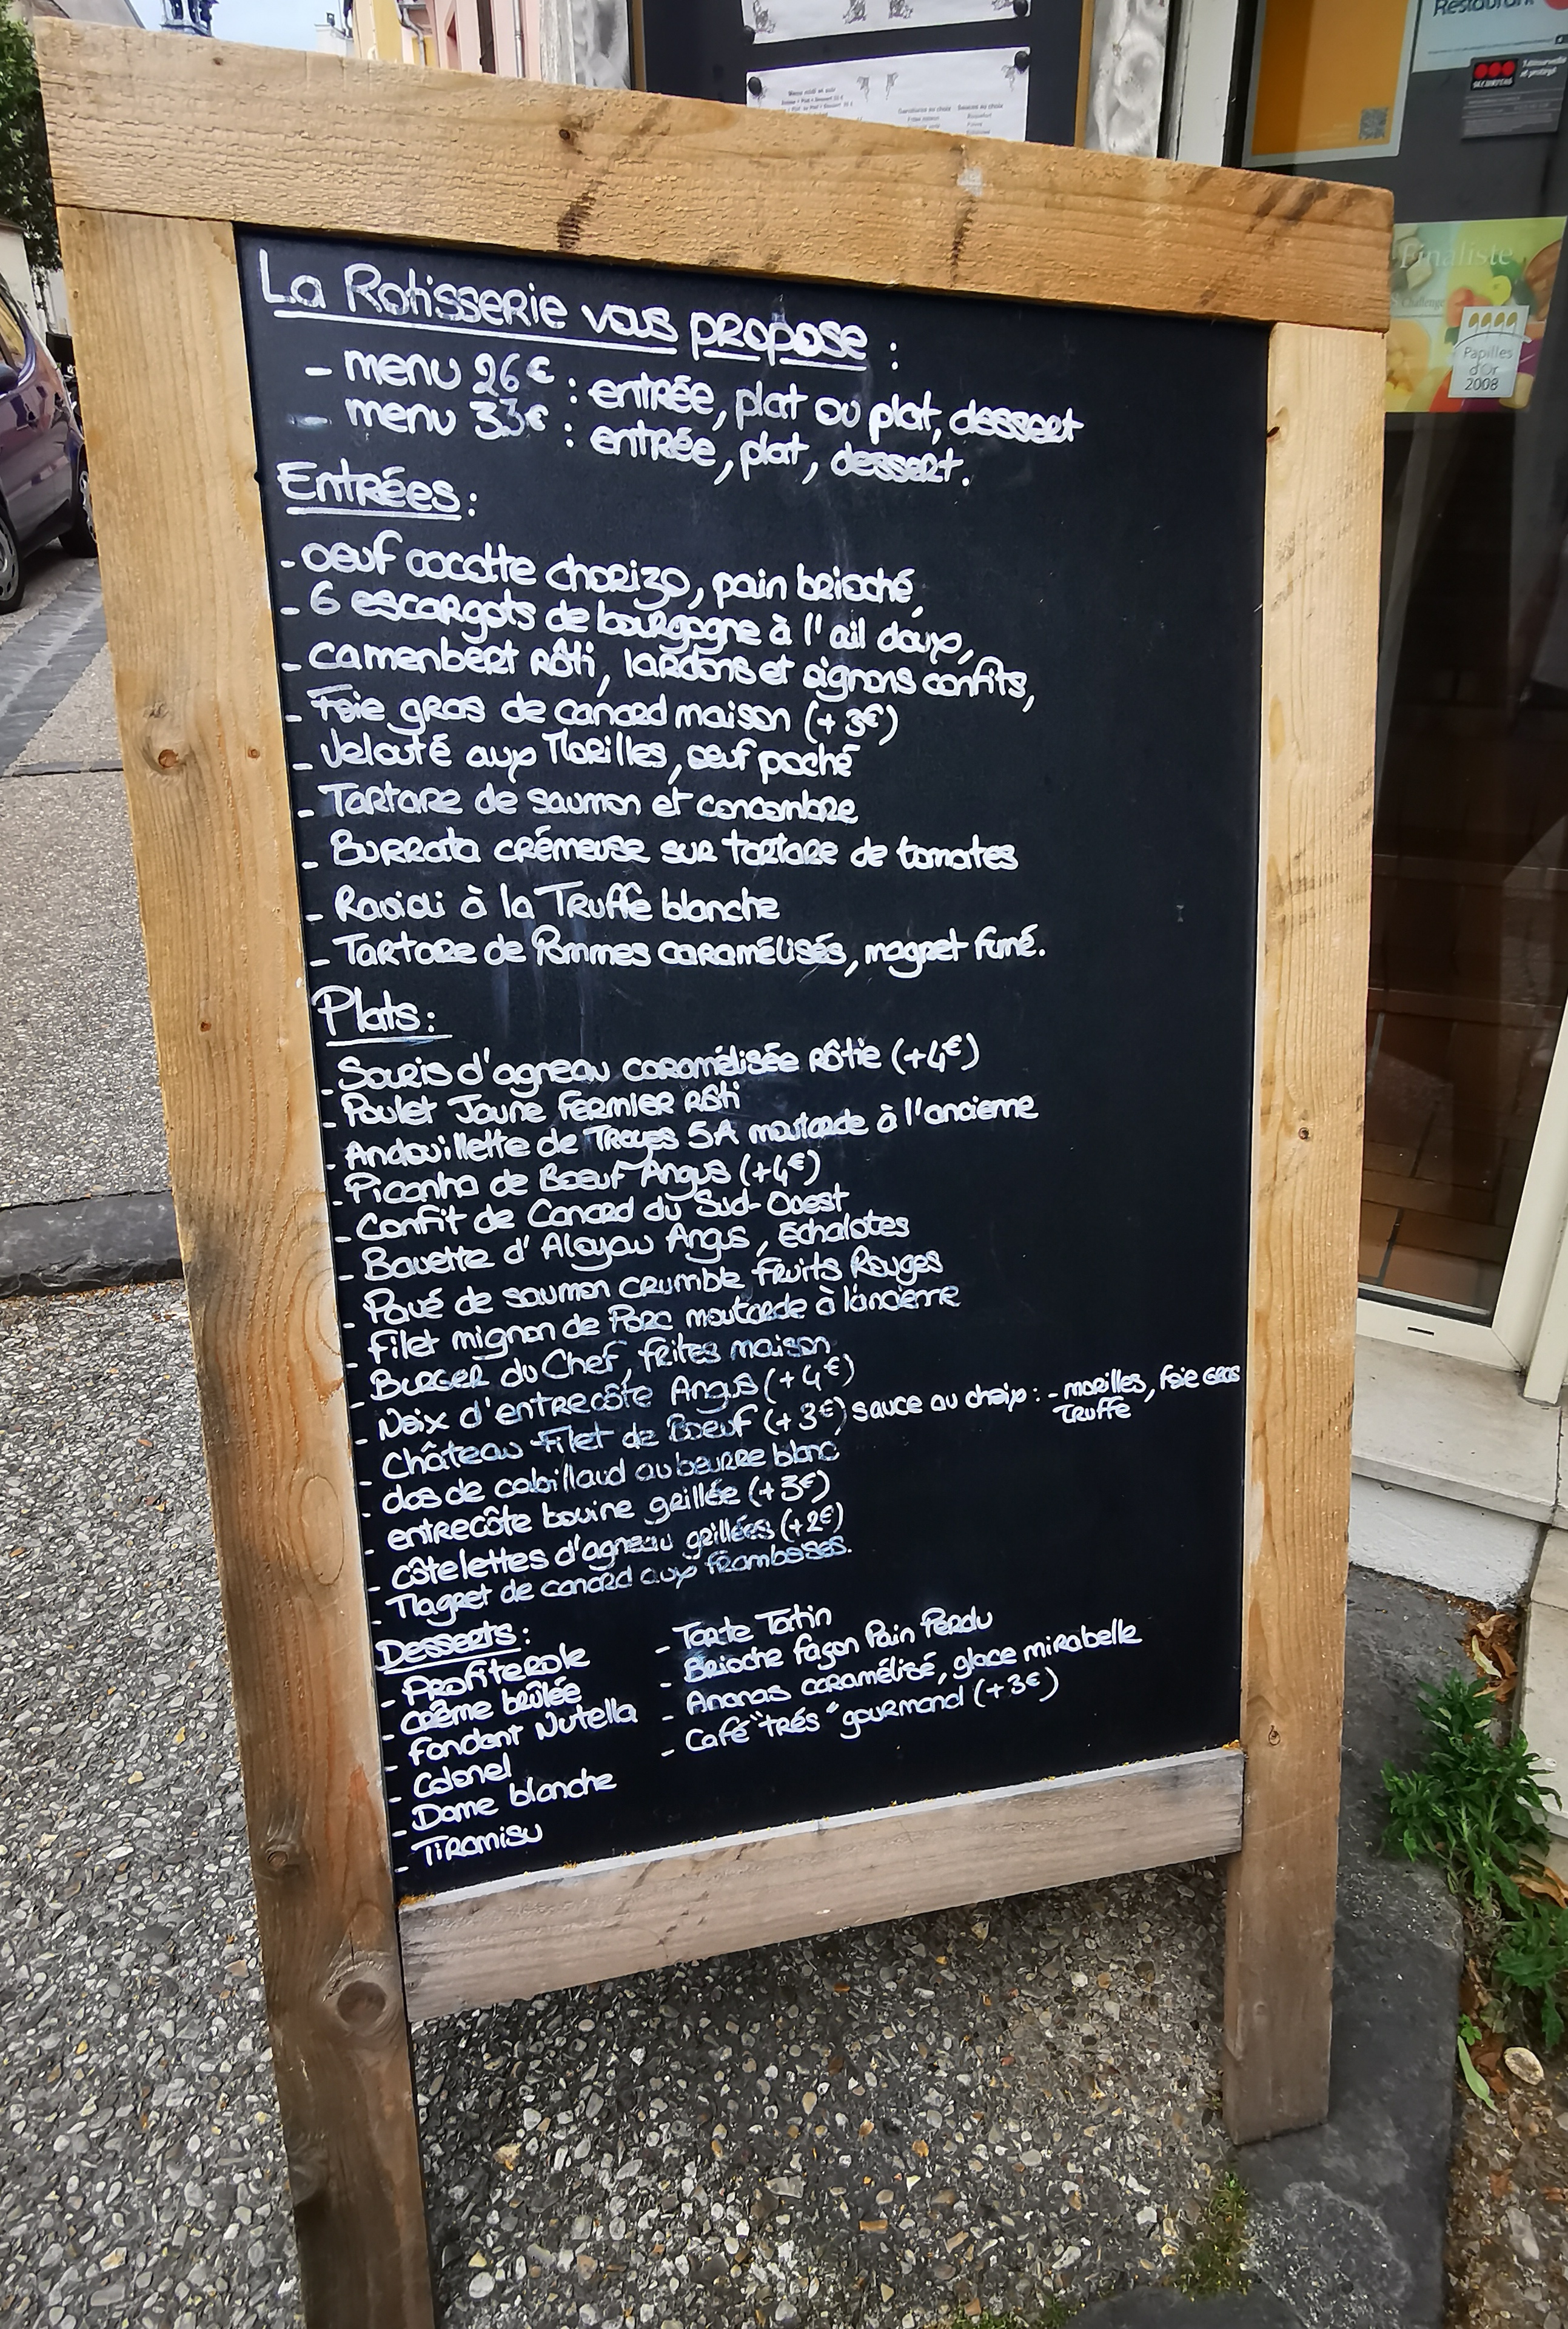 La Rotisserie vous propose :
- menu 26€ : entrée, plat ou plat, dessert
- menu 33€ : entrée, plat, dessert.
Entrées :
- oeuf cocotte chorizo, pain brioché,
- 6 escargots de bourgogne à l'ail doux,
- camenbert rôti, lardons et oignons confits,
- Foie gras de canard maison (+3€)
- Velouté aux Morilles, oeuf poché
- Tartare de saumon et concombre
- Burrata crémeuse sur tartare de tomates
- Ravioli à la Truffe blanche
- Tartare de Pommes caramélisés, magret fumé.
Plats :
- Souris d'agneau caramélisée rôtie (+4€)
- Poulet Jaune Fermier rôti
- Andouillette de Troyes 5A moutarde à l'ancienne
- Picanha de Boeuf Angus (+4€)
- Confit de Canard du Sud-Ouest
- Bavette d'Aloyau Angus, Échalotes
- Pavé de saumon crumble Fruits Rouges
- Filet mignon de Porc moutarde à l'ancienne
- Burger du Chef, frites maison
- Noix d'entrecôte Angus (+4€)
- Château Filet de Boeuf (+3€) sauce au choix : - morilles, foie gras
truffe
- dos de cabillaud au beurre blanc
- entrecôte bovine grillée (+3€)
- côtelettes d'agneau grillées (+2€)
- Magret de canard aux framboises.
Desserts :
- Profiterole
- crème brûlée
- Fondant Nutella
- Colonel
- Dame blanche
- Tiramisu
- Tarte Tatin
- Brioche façon Pain Perdu
- Ananas caramélisé, glace mirabelle
- Café "trés" gourmand (+3€)
Restaurant
SECURITAS
Finaliste
Challenge
Papilles
d'Or
2008